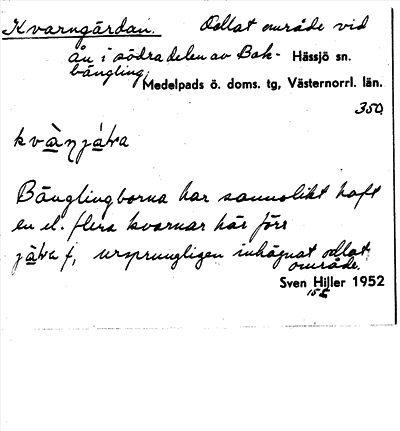 Kvarngärdan. Odlat område vid
ån i södra delen av Bak- Hässjö sn.
bängling. Medelpads ö. doms. tg, Västernorrl. län.
350.
kvàṇjáɫa
Bänglingborna har sannolikt haft
en el. flera kvarnar här förr
f, ursprungligen inhägnat odlat
område.
Sven Hiller 1952